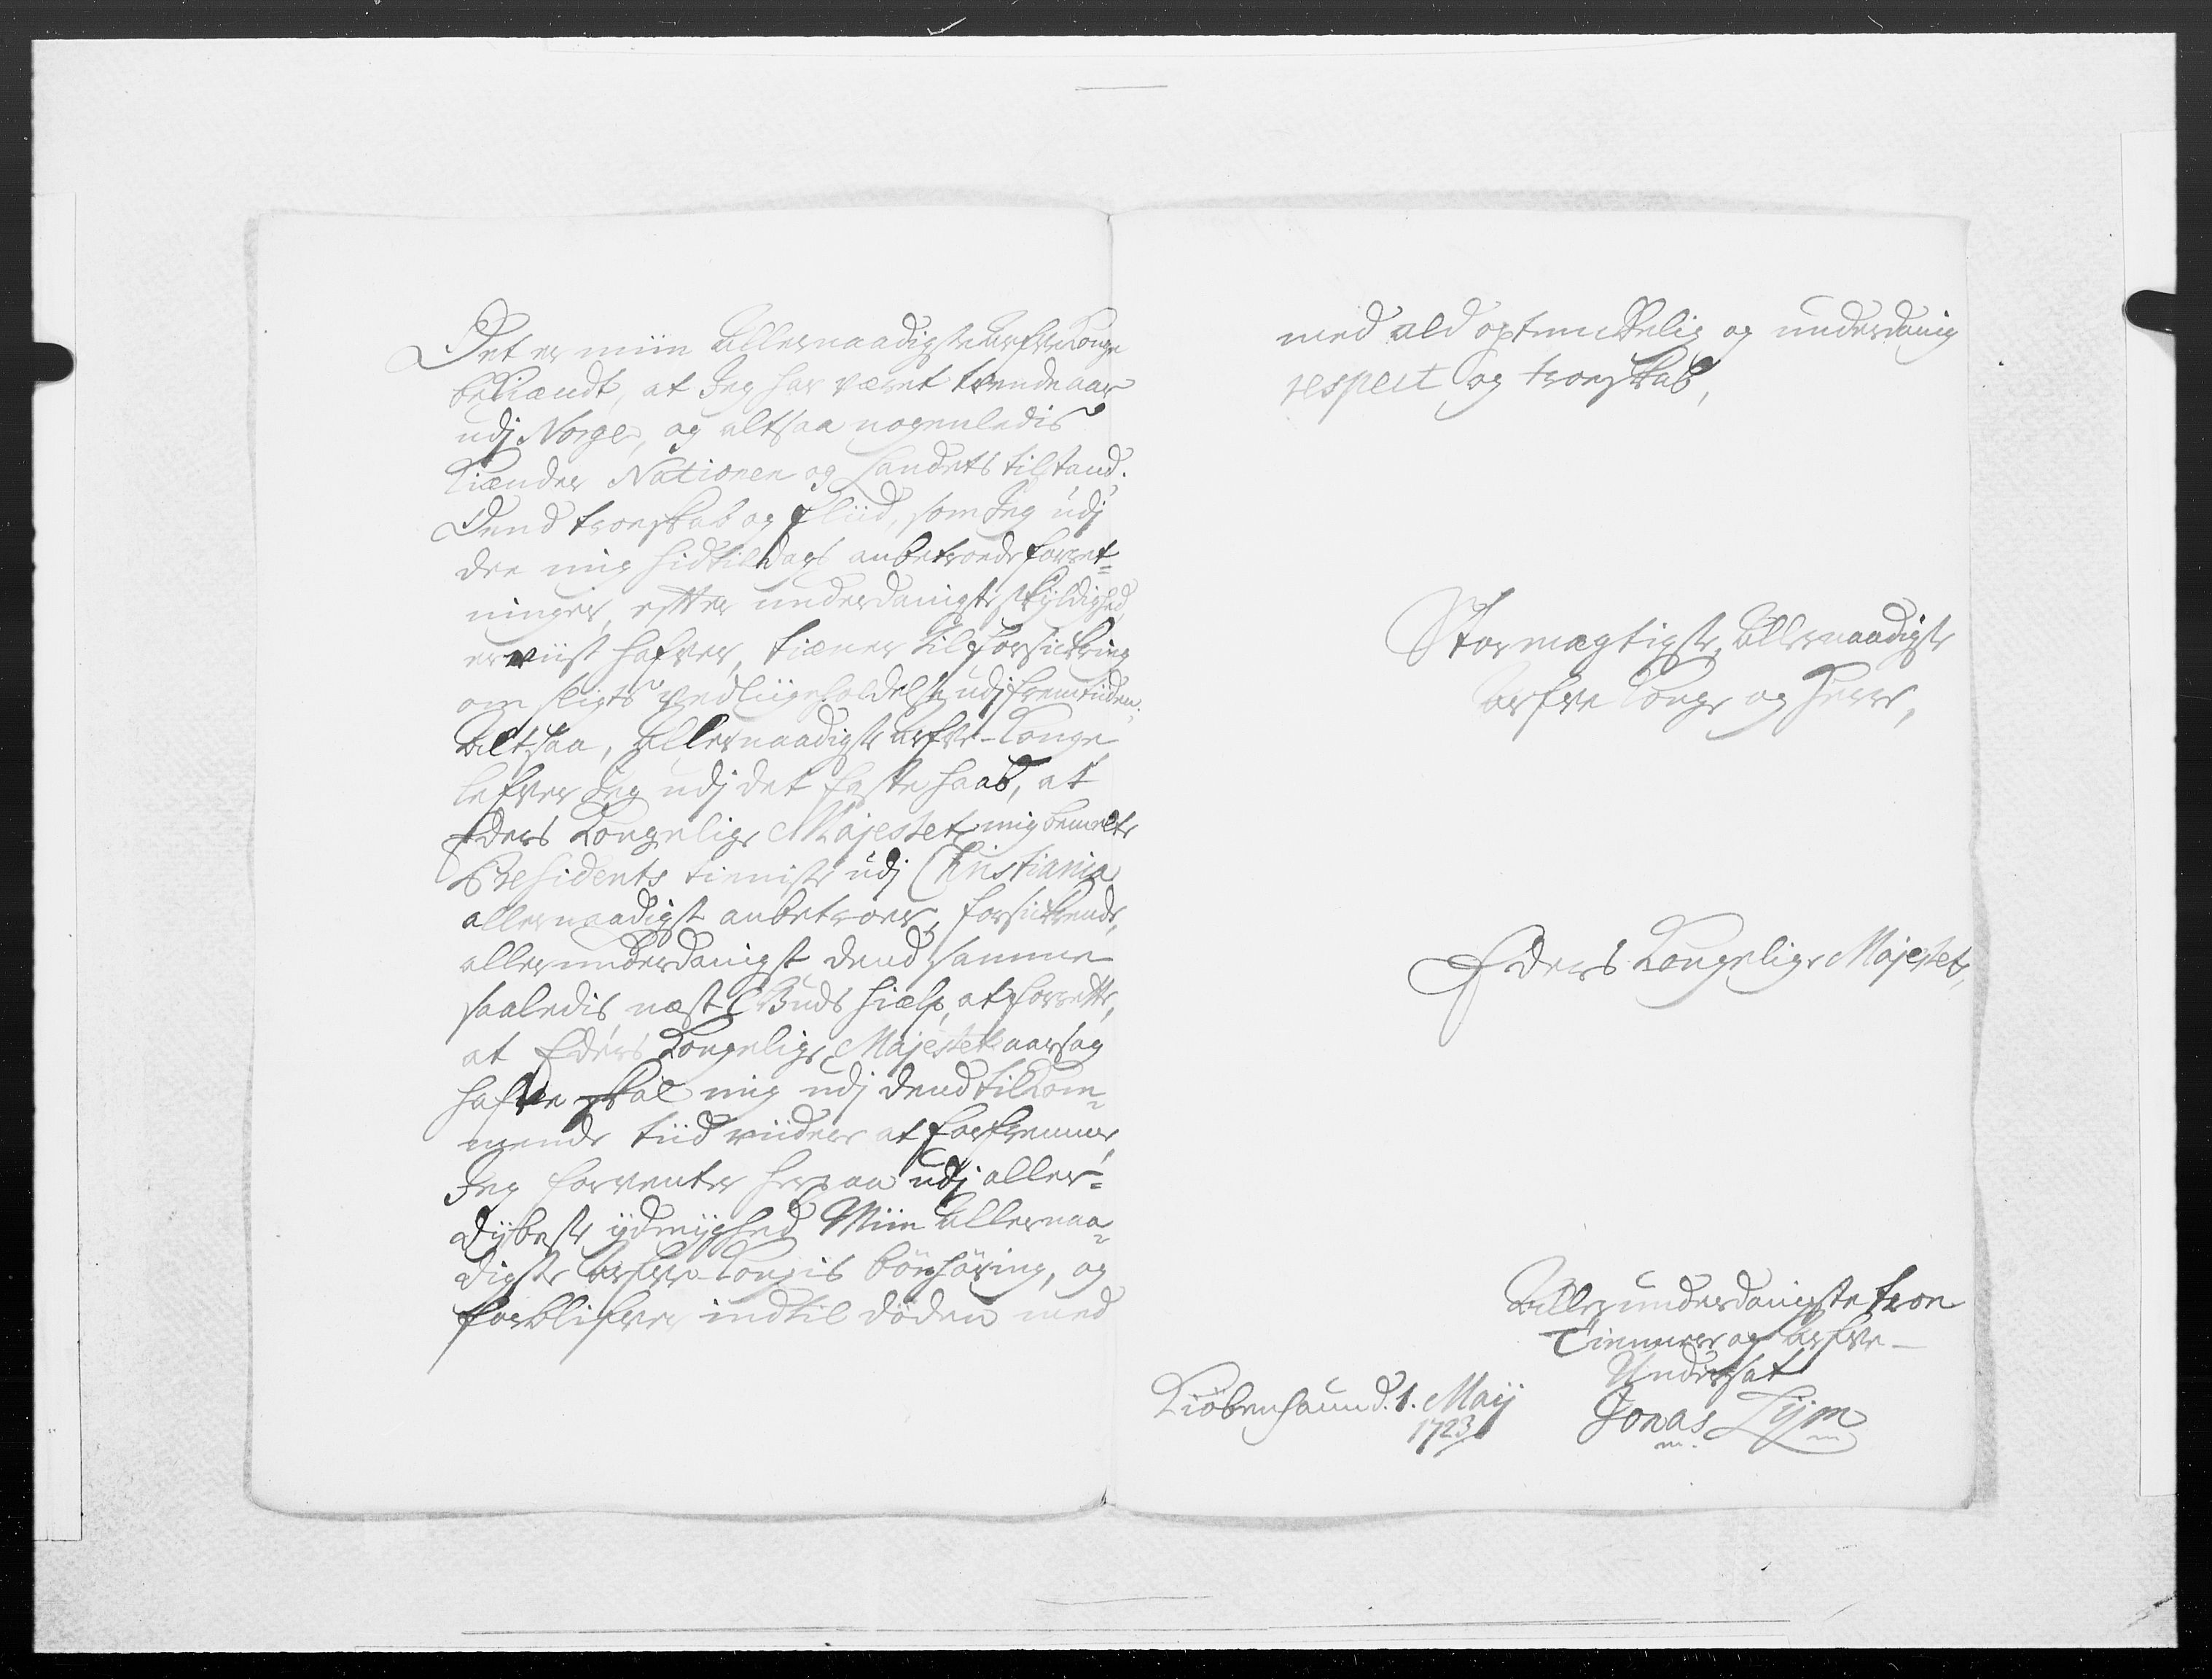 Det er miin Allernaadigste Arfve Konge
bekiændt, at Jeg har været trende aar
udj Norge, og altsaa nogenledis
kiænder Nationen og Landets tilstand.
Dend troeskab og fliid, som Jeg udj
dee mig hidtildags anbetroede forret-
ninger, efter underdanigste skyldighed
erviist hafver, tiæner til forsickring
om sligts vedliigeholdelse udj fremtiden.
Altsaa, Allernaadigste Arfve-Konge
lefver Jeg udj det faste haab, at
Eders Kongelige Majestet mig bemelte
Præsidents tieniste udj Christiania
allernaadigst anbetroer, forsickrende,
allerunderdanigst dend samme
saaledis næst Guds hielp, at forrette,
at Eders Kongelige Majestet aarsag
hafve skal mig udj dend tilkom-
mende tiid viidere at forfremme,
Jeg forventer herpaa udj aller-
dybeste ydmyghed Miin Allernaa-
digste Arfve-Kongis bönhöring, og
forblifver indtil döden med
med ald optenckelig og underdanig
respect og troeskab,
Stormægtigste, Allernaadigste
Arfve Konge og Herre,
Eders Kongelige Majestets,
Allerunderdanigste troe
Tiennere og Arfve-
Undersat
Kiöbenhaun d. 1. Maij
1723
Jonas Lijm